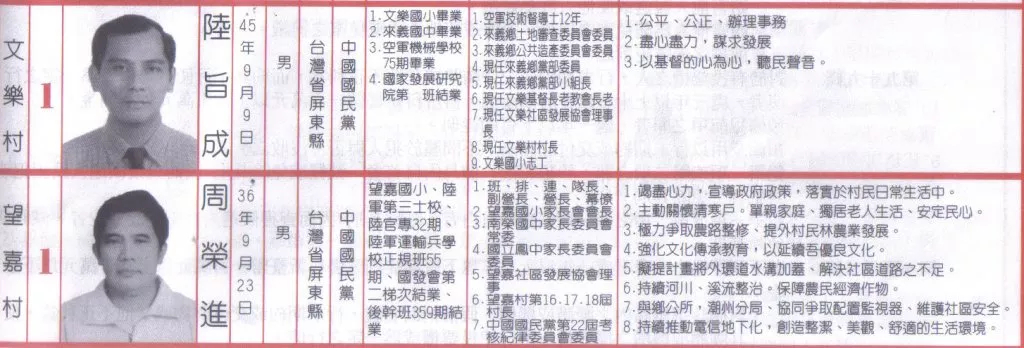 文樂村
1
陸旨成
45年9月9日
男
台灣省屏東縣
中國國民黨
1.文樂國小畢業
2.來義國中畢業
3.空軍機械學校
75期畢業
4.國家發展研究
院第一班結業
1.空軍技術督導士12年
2.來義鄉土地審查委員會委員
3.來義鄉公共造產委員會委員
4.現任來義鄉黨部委員
5.現任來義鄉黨部小組長
6.現任文樂基督長老教會長老
7.現任文樂社區發展協會理事
長
8.現任文樂村村長
9.文樂國小志工
1.公平、公正,辦理事務
2.盡心盡力,謀求發展
3.以基督的心為心,聽民聲音。
望嘉村
1
周榮進
36年9月23日
男
台灣省屏東縣
中國國民黨
望嘉國小、陸
軍第三士校、
陸官專32期、
陸軍運輸兵學
校正規班55
期、國發會第
二梯次結業、
後幹班359期結
業
1.班、排、連、隊長、
副營長、營長、幕僚
2.望嘉國小家長會會長
3.南榮國中家長委員會
常委
4.國立鳳中家長委員會
委員
5.望嘉社區發展協會理
事
6.望嘉村第16.17.18屆
村長
7.中國國民黨第22屆考
核紀律委員會委員
1.竭盡心力,宣導政府政策,落實於村民日常生活中。
2.主動關懷清寒戶。單親家庭、獨居老人生活、安定民心。
3.極力爭取農路整修、提外村民林農業發展。
4.強化文化傳承教育,以延續吾優良文化。
5.擬提計畫將外環道水溝加蓋、解決社區道路之不足。
6.持續河川、溪流整治。保障農民經濟作物。
7.與鄉公所,潮州分局、協同爭取配置監視器、維護社區安全。
8.持續推動電信地下化,創造整潔、美觀、舒適的生活環境。